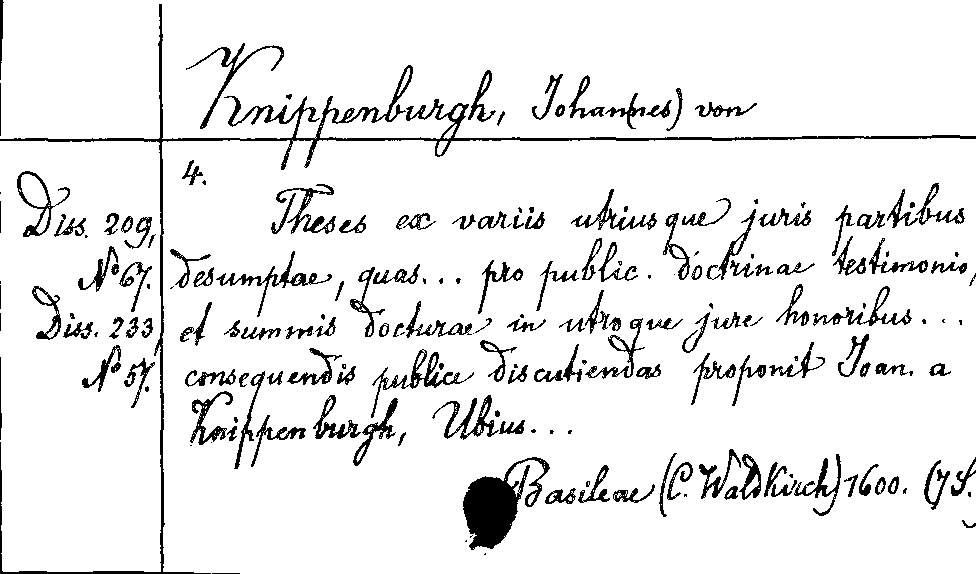 Knippenburgh, Johan(nes) von
4.
Diss. 209,
No 67.
Diss. 233,
No 57.
Theses ex variis utriusque juris partibus
desumptae, quas... pro public. doctrinae testimonio,
et summis docturae in utroque jure honoribus...
consequendis publice discutiendas proponit Joan. a
Knippenburgh, Ubius...
Basileae (C. Waldkirch) 1600. (7 S.